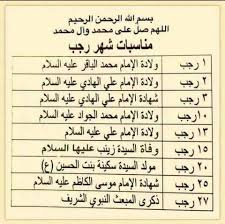 بسم الله الرحمن الرحيم
اللهم صل على محمد وال محمد
مناسبات شهر رجب
١ رجب ولادة الإمام محمد الباقر عليه السلام
٢ رجب ولادة الإمام علي الهادي عليه السلام
٣ رجب شهادة الإمام علي الهادي عليه السلام
١٠ رجب ولادة الإمام محمد الجواد عليه السلام
١٣ رجب ولادة الإمام علي عليه السلام
١٥ رجب وفاة السيدة زينب عليها السلام
٢٠ رجب مولد السيدة سكينة بنت الحسين (ع)
٢٥ رجب شهادة الإمام موسى الكاظم عليه السلام
٢٧ رجب ذكرى المبعث النبوي الشريف